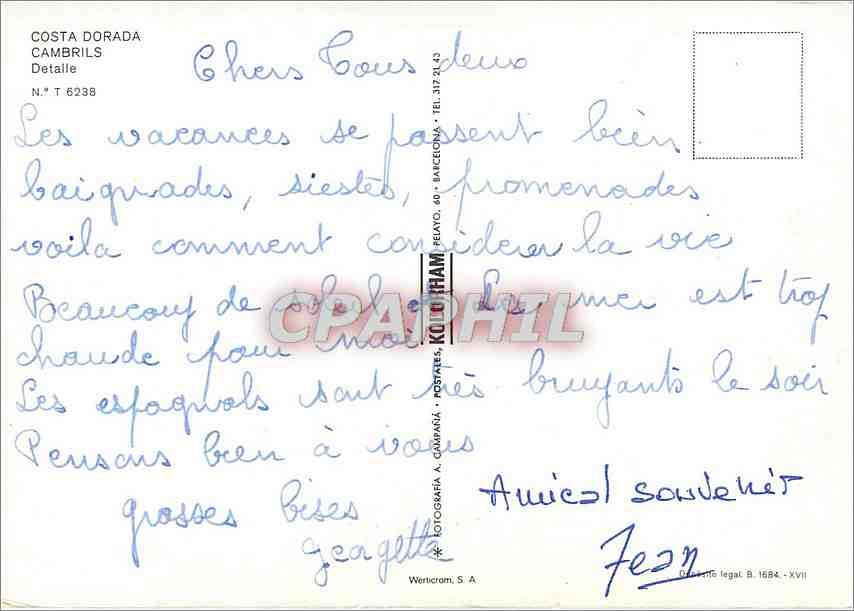 COSTA DORADA
CAMBRILS
Detalle
N.º T 6238
Chers Tous deux
Les vacances se passent bien
baignades, siestes, promenades
voila comment considerer la vie
Beaucoup de soleil et La mer est trop
chaude pour moi
Les espagnols sont très bruyants le soir
Pensons bien à vous
grosses bises
Georgette
Amical souvenir
Jean
* FOTOGRAFIA A. CAMPAÑA • POSTALES KOLORHAM PELAYO, 60 • BARCELONA • TEL. 317 21 43
Werticrom, S. A
Depósito legal. B. 1684. - XVII
CPAPHIL